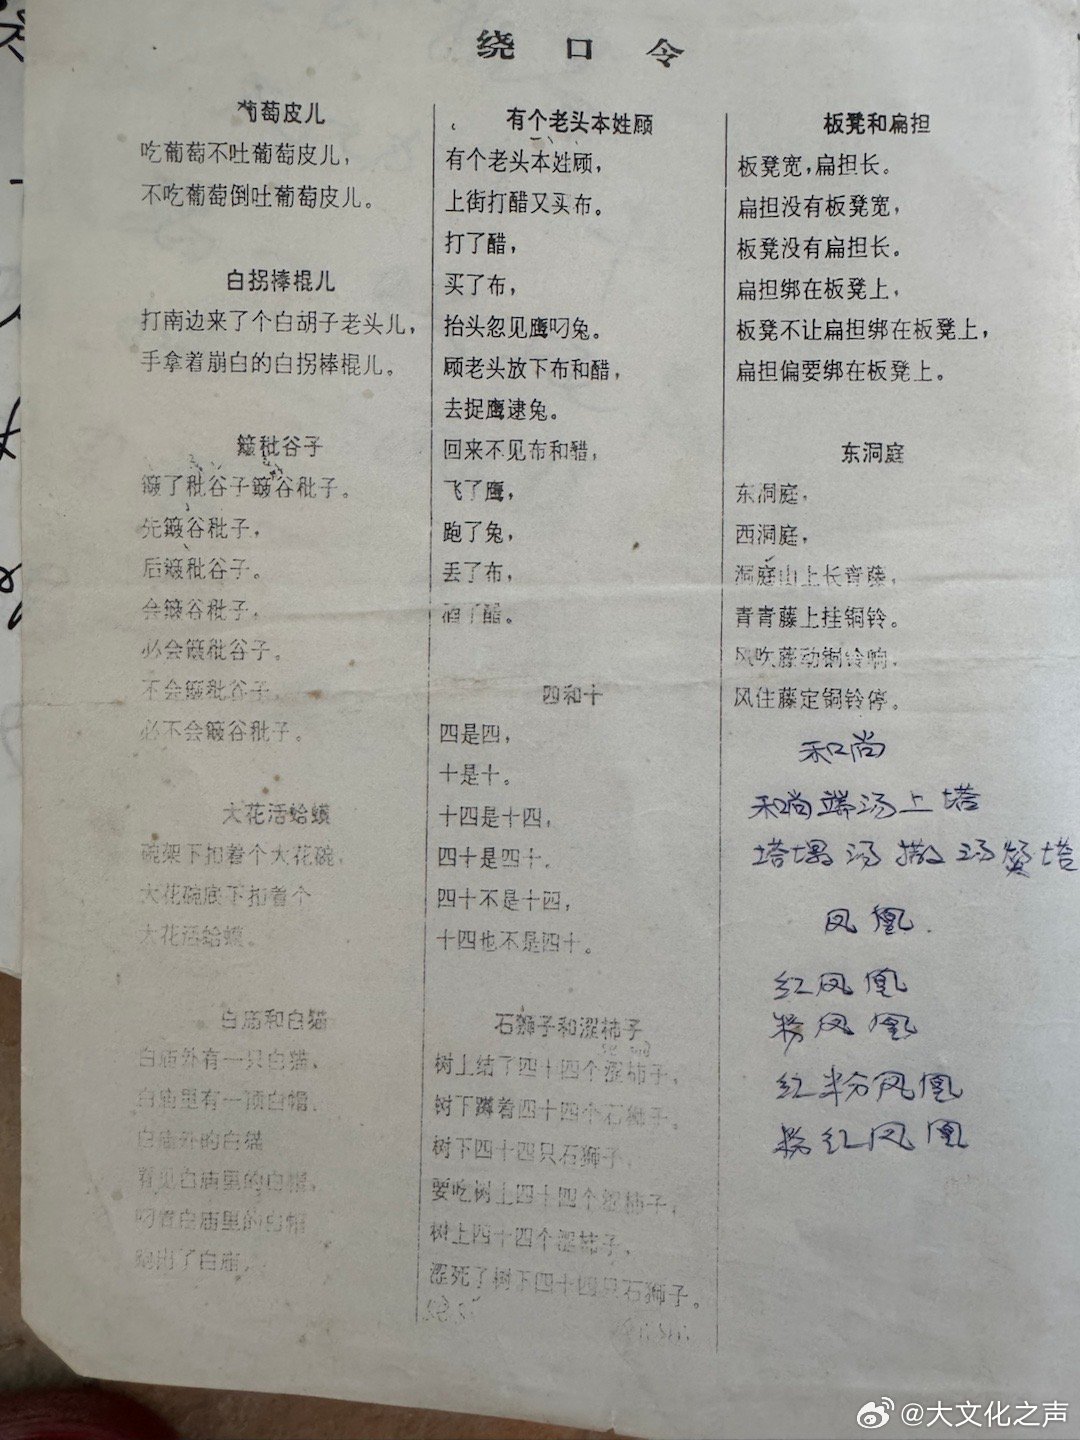 绕口令
葡萄皮儿
吃葡萄不吐葡萄皮儿，
不吃葡萄倒吐葡萄皮儿。
白拐棒棍儿
打南边来了个白胡子老头儿，
手拿着崩白的白拐棒棍儿。
簸秕谷子
簸了秕谷子簸谷秕子。
先簸谷秕子，
后簸秕谷子。
会簸谷秕子，
必会簸秕谷子。
不会簸秕谷子，
必不会簸谷秕子。
大花活蛤蟆
碗架下扣着个大花碗，
大花碗底下扣着个
大花活蛤蟆。
白庙和白猫
白庙外有一只白猫，
白庙里有一顶白帽，
白庙外的白猫
看见白庙里的白帽，
叼着白庙里的白帽
跑出了白庙。
有个老头本姓顾
有个老头本姓顾，
上街打醋又买布。
打了醋，
买了布，
抬头忽见鹰叼兔。
顾老头放下布和醋，
去捉鹰逮兔。
回来不见布和醋，
飞了鹰，
跑了兔，
丢了布，
洒了醋。
四和十
四是四，
十是十。
十四是十四，
四十是四十，
四十不是十四，
十四也不是四十。
石狮子和涩柿子
树上结了四十四个涩柿子，
树下蹲着四十四个石狮子。
树下四十四只石狮子，
要吃树上四十四个涩柿子，
树上四十四个涩柿子，
涩死了树下四十四只石狮子。
板凳和扁担
板凳宽，扁担长。
扁担没有板凳宽，
板凳没有扁担长。
扁担绑在板凳上，
板凳不让扁担绑在板凳上，
扁担偏要绑在板凳上。
东洞庭
东洞庭，
西洞庭，
洞庭山上长青藤，
青青藤上挂铜铃。
风吹藤动铜铃响，
风住藤定铜铃停。
和尚
和尚端汤上塔
塔塌汤撒汤烫塔
凤凰.
红凤凰
粉凤凰
红粉凤凰
粉红凤凰
@大文化之声